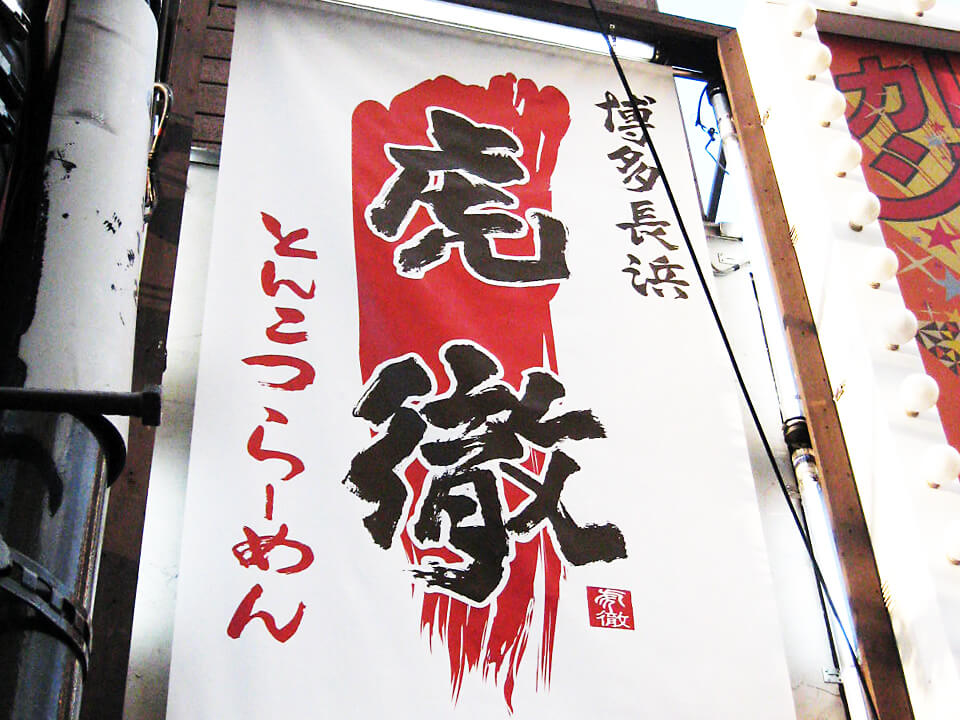 博多長浜
虎徹
とんこつらーめん
虎徹